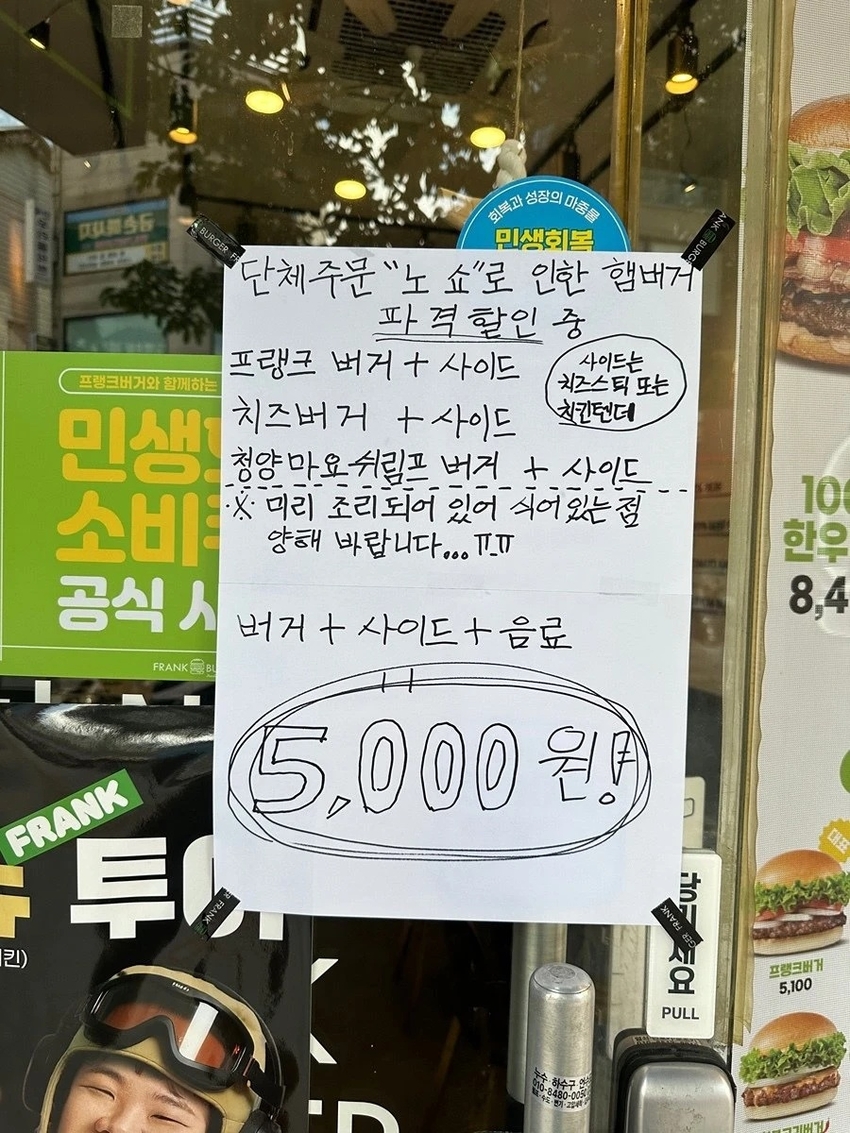 회복과 성장의 마중물
민생회복
BURGER FR
ANK BURG
단체주문 "노 쇼"로 인한 햄버거
파격할인 중
프랭크 버거 + 사이드
치즈버거 + 사이드
청양마요쉬림프 버거 + 사이드
사이드는
치즈스틱 또는
치킨텐더
※ 미리 조리되어 있어 식어있는점
양해 바랍니다... ㅠ_ㅠ
버거 + 사이드 + 음료
5,000원!
프랭크버거와 함께하는
민생
소비
공식
FRANK BU
FRANK
투
킨)
ER FRANK
GER FRANK
당기세요
PULL
100
한우
8,4
대표
프랭크버거
5,100
누수·하수구